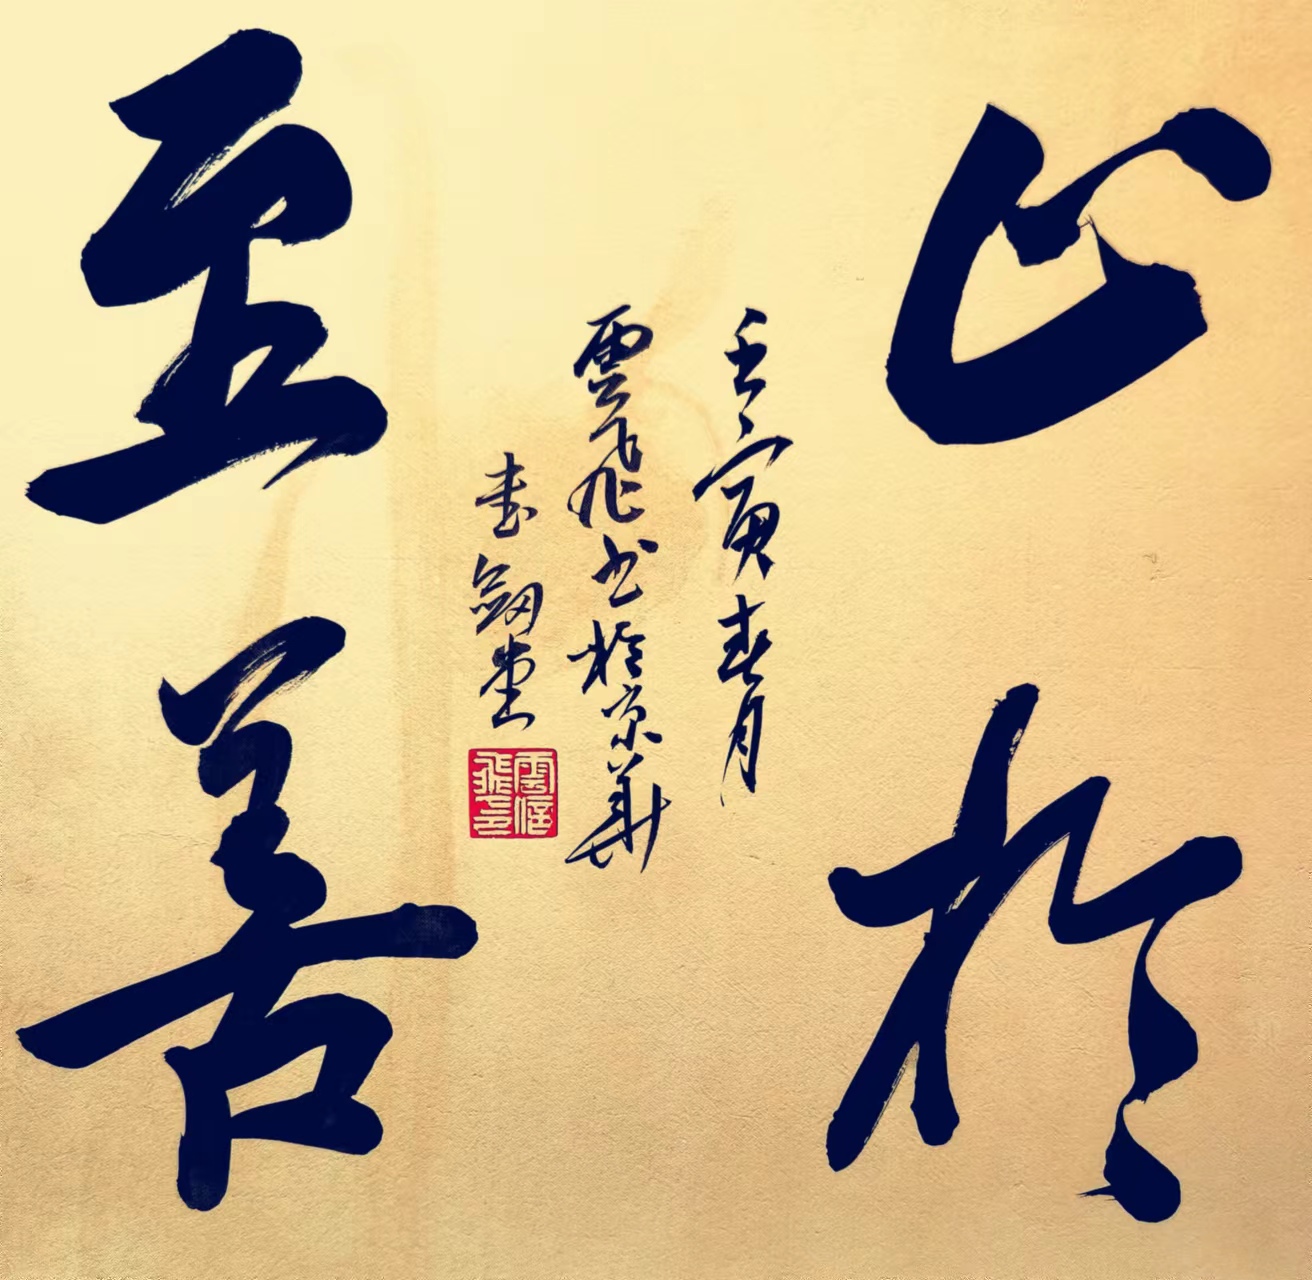 止於
至善
壬寅春月
雲飛书於京華
書劍堂